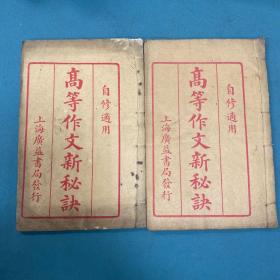 自修適用
高等作文新秘訣
上海廣益書局發行
自修適用
高等作文新秘訣
上海廣益書局發行